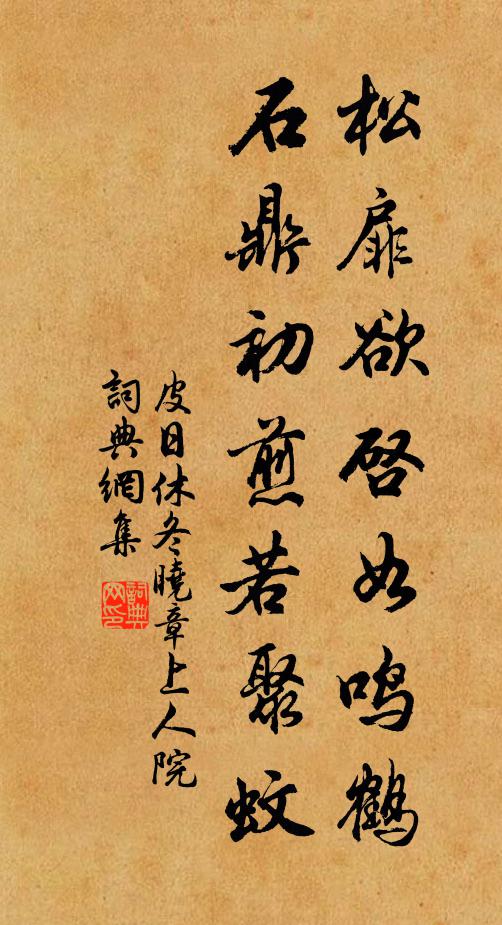 松扉欲啓如鳴鶴
石鼎初煎若聚蚊
皮日休冬曉章上人院
詞典網集
詞典网印